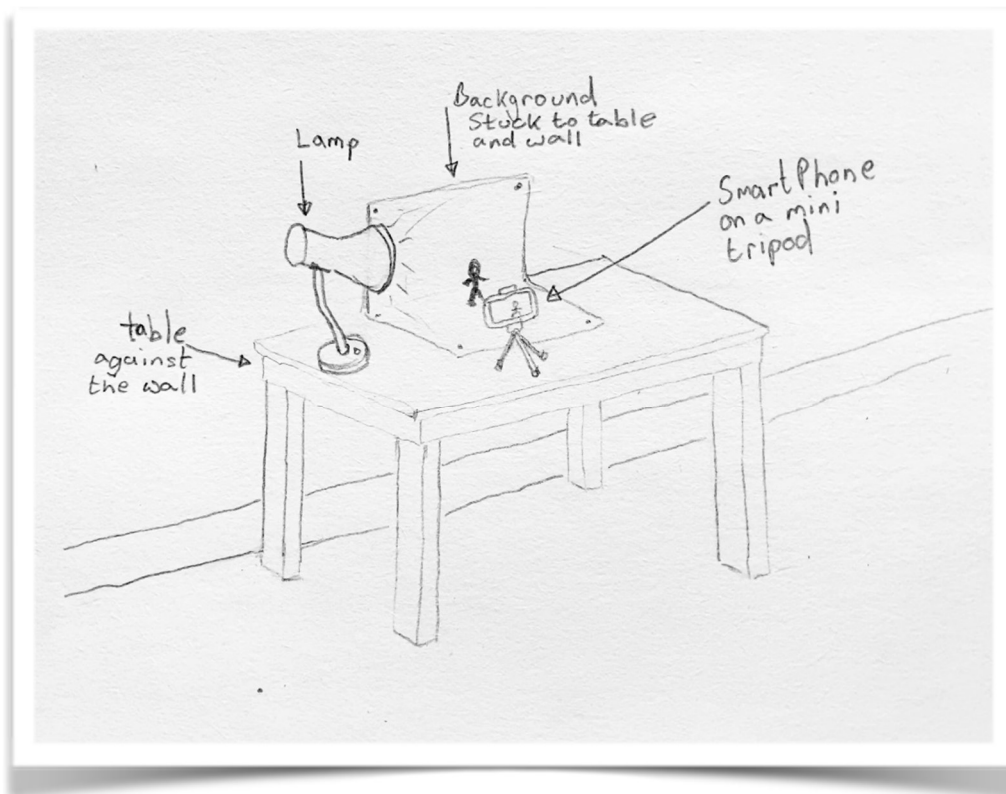 Background
Stuck to table
and wall
Lamp
SmartPhone
on a mini
tripod
table
against
the wall